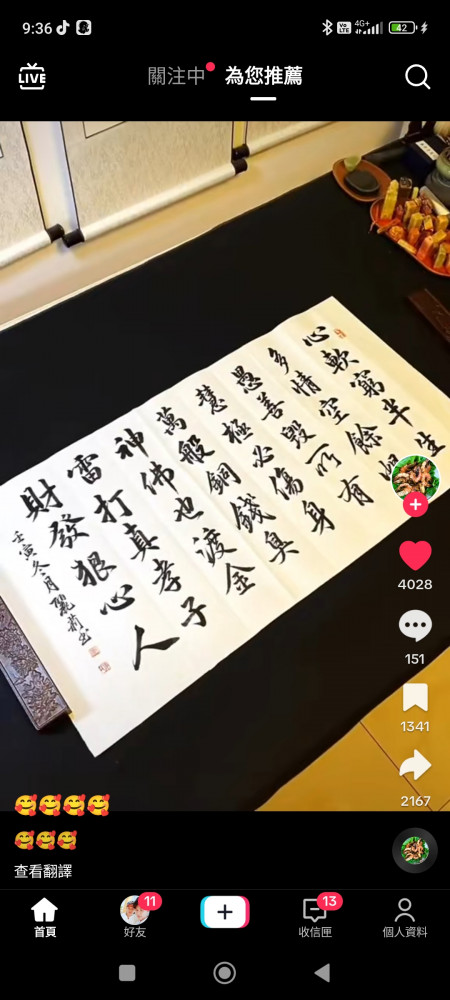 9:36
4G+
VoLTE
42
LIVE
關注中
為您推薦
心軟窮半生
多情空餘
愚善毀所有
慧極必傷身
萬般銅錢臭
神佛也渡金
雷打真孝子
財發狠心人
壬寅冬月
4028
151
1341
2167
🥰🥰🥰🥰
🥰🥰🥰
查看翻譯
11
13
首頁
好友
收信匣
個人資料